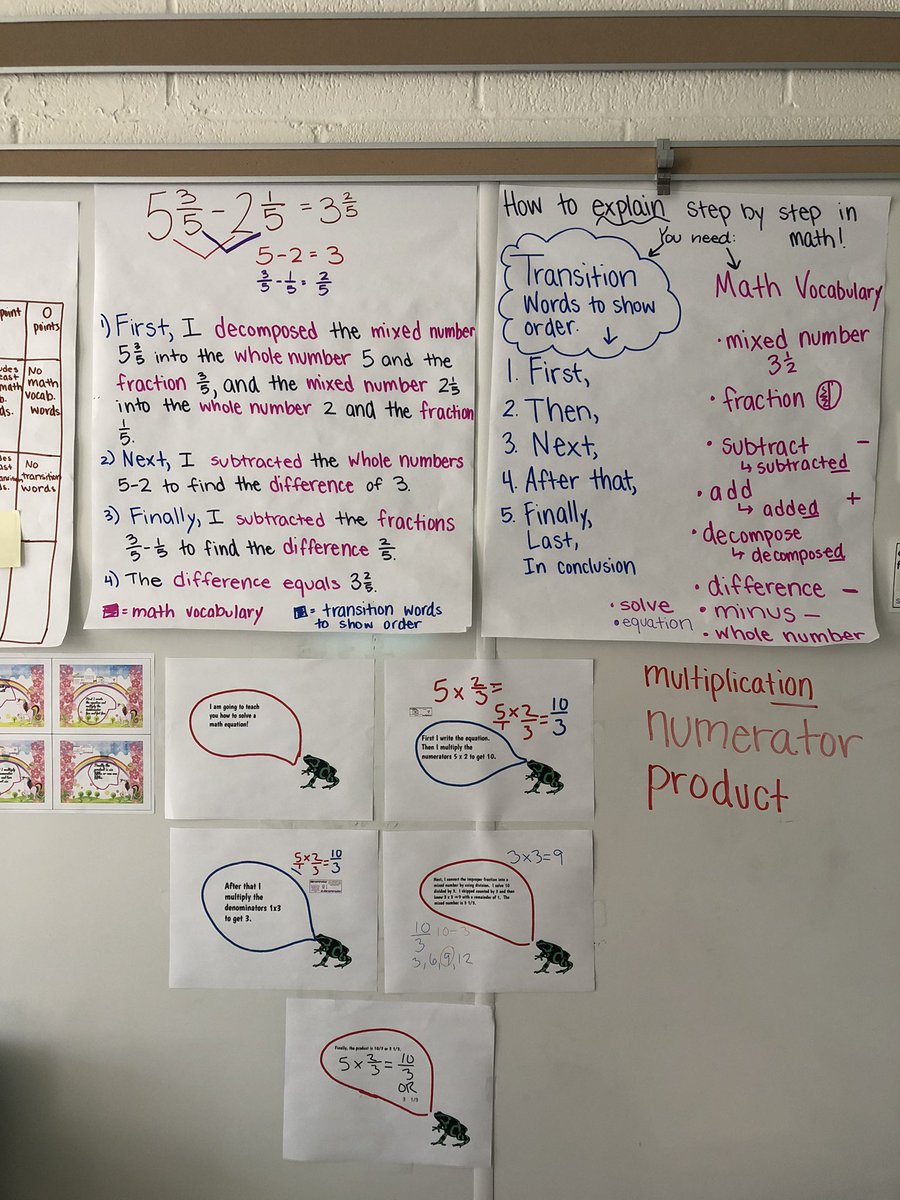 5 3/5 - 2 1/5 = 3 2/5
5-2=3
3/5 - 1/5 = 2/5
1) First, I decomposed the mixed number
5 3/5 into the whole number 5 and the
fraction 3/5, and the mixed number 2 1/5
into the whole number 2 and the fraction
1/5.
2) Next, I subtracted the whole numbers
5-2 to find the difference of 3.
3) Finally, I subtracted the fractions
3/5 - 1/5 to find the difference 2/5.
4) The difference equals 3 2/5.
= math vocabulary
= transition words
to show order
How to explain step by step in
math!
You need:
Transition
Words to show
order.
1. First,
2. Then,
3. Next,
4. After that,
5. Finally,
Last,
In conclusion
Math Vocabulary
• mixed number
3 1/2
• fraction
• subtract -
↳ subtracted
• add +
↳ added
• decompose
↳ decomposed
• difference -
• minus -
• whole number
• solve
• equation
point
0
points
No
math
vocab.
words
No
transition
words
multiplication
numerator
product
I am going to teach
you how to solve a
math equation!
5 x 2/3 =
5/1 x 2/3 = 10/3
First I write the equation.
Then I multiply the
numerators 5 x 2 to get 10.
5/1 x 2/3 = 10/3
After that I
multiply the
denominators 1x3
to get 3.
3x3=9
Next, I convert the improper fraction into a
mixed number by using division. I solve 10
divided by 3. I skipped counted by 3 and then
knew 3 x 3 =9 with a remainder of 1. The
mixed number is 3 1/3.
10/3 10-3
3, 6, 9, 12
Finally, the product is 10/3 or 3 1/3.
5 x 2/3 = 10/3
OR
3 1/3